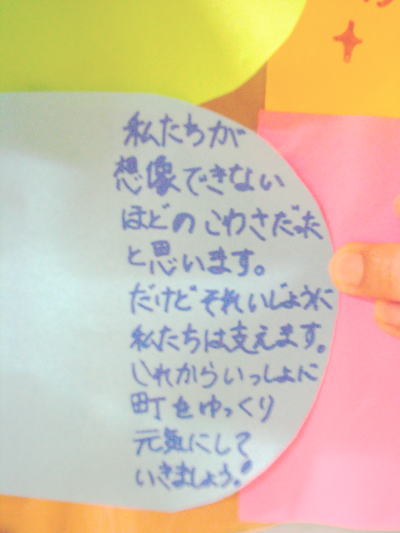 私たちが
想像できない
ほどのこわさだった
と思います。
だけどそれいじょうに
私たちは支えます。
これからいっしょに
町をゆっくり
元気にして
いきましょう。